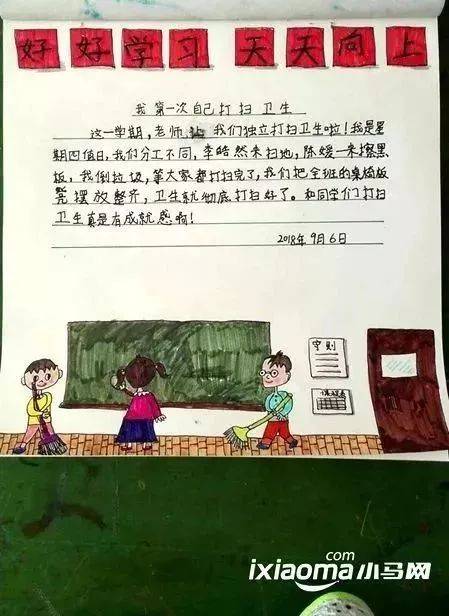 好好学习 天天向上
我第一次自己打扫卫生
这一学期,老师让我们独立打扫卫生啦!我是星
期四值日,我们分工不同,李皓然来扫地,陈媛一来擦黑
板,我倒垃圾,等大家都打扫完了,我们把全班的桌椅板
凳摆放整齐,卫生就彻底打扫好了。和同学们打扫
卫生真是有成就感啊!
2018年9月6日
守则
课程表
ixiaoma.com小马网